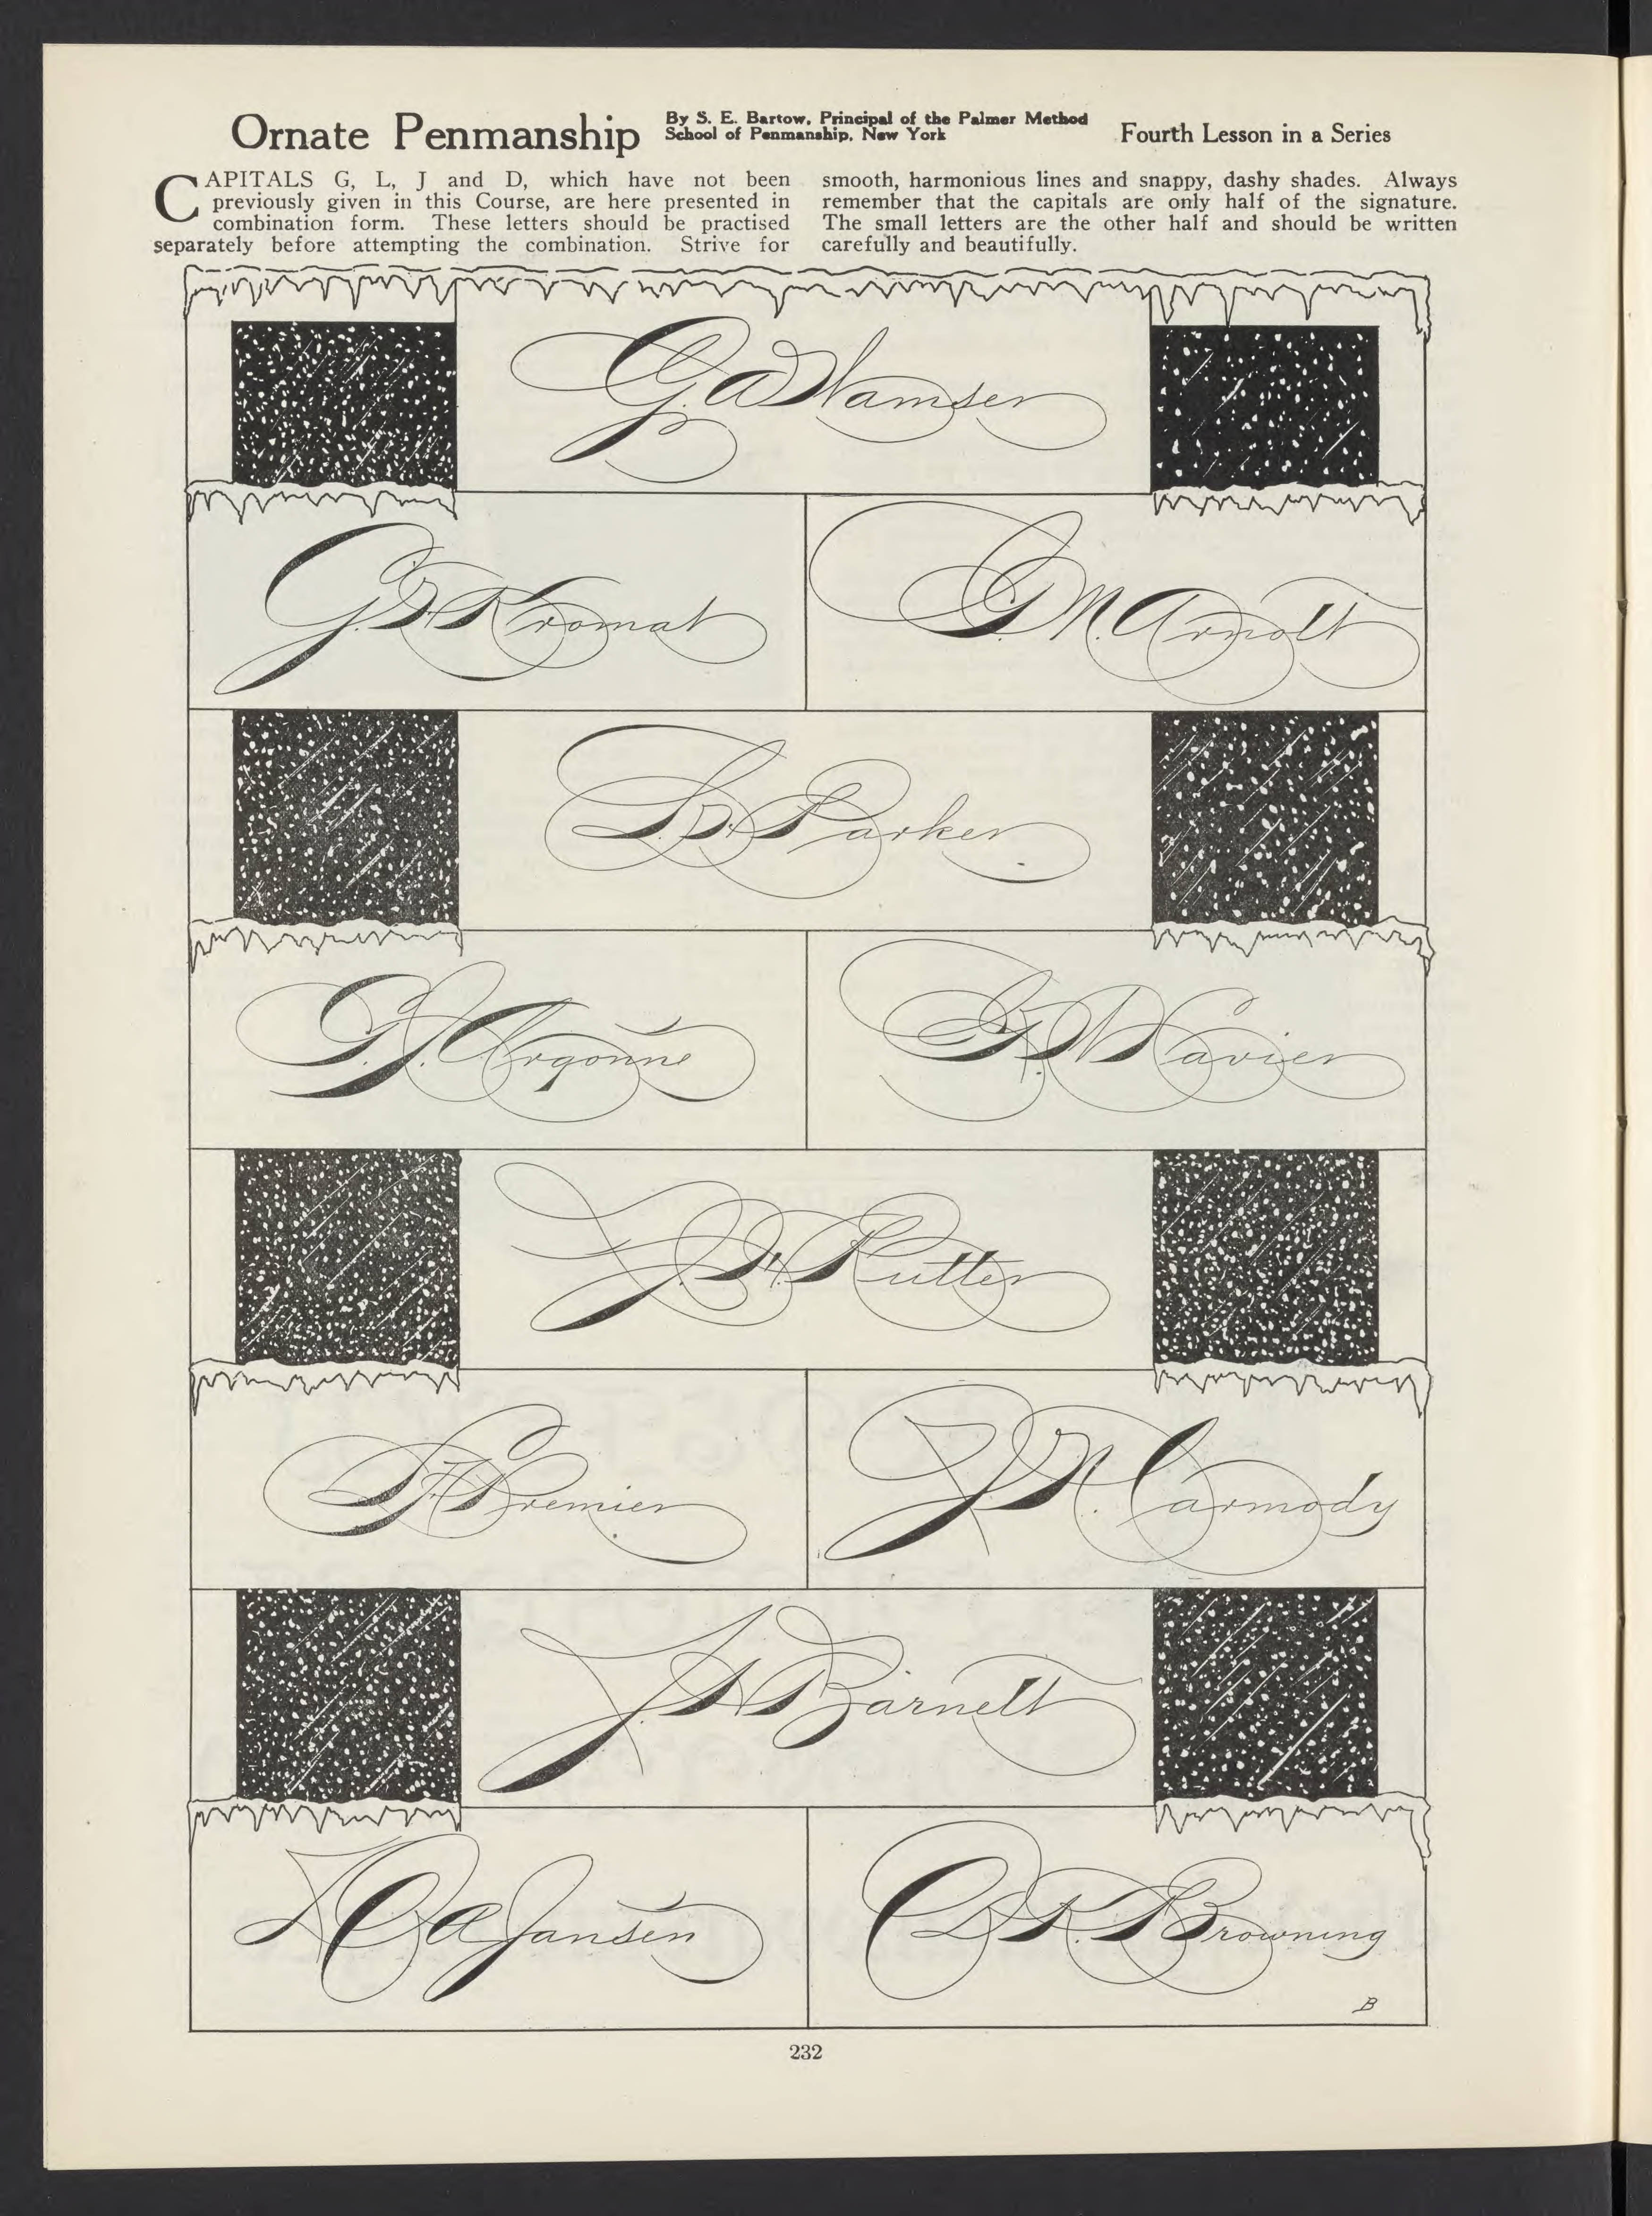 Ornate Penmanship
By S. E. Bartow, Principal of the Palmer Method
School of Penmanship, New York
Fourth Lesson in a Series
CAPITALS G, L, J and D, which have not been
previously given in this Course, are here presented in
combination form. These letters should be practised
separately before attempting the combination. Strive for
smooth, harmonious lines and snappy, dashy shades. Always
remember that the capitals are only half of the signature.
The small letters are the other half and should be written
carefully and beautifully.
G. A. Wamser
Kromat
G. M. Arnolt
Parker
G. J. Argonne
Xavier
Rutter
Premier
J. N. Carmody
Barnett
Jansen
Browning
B
232